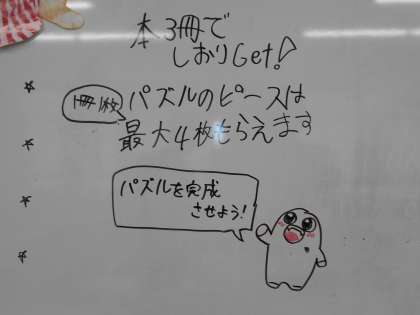 本3冊で
しおりGet!
1冊1枚
パズルのピースは
最大4枚もらえます
パズルを完成
させよう!